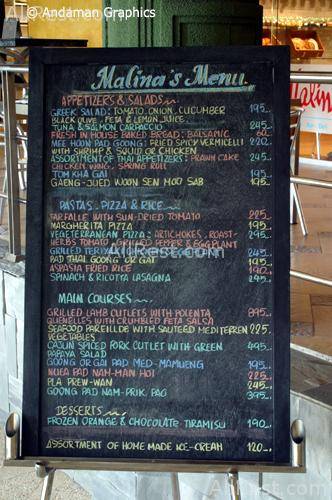 © Andaman Graphics
Malina's Menu
APPETIZERS & SALADS
GREEK SALAD: TOMATO, ONION, CUCUMBER 195.-
BLACK OLIVE, FETA & LEMON JUICE
TUNA & SALMON CARPACCIO 245.-
FRESH IN HOUSE BAKED BREAD: BALSAMIC 60.-
MEE HOON PAD GOONG: FRIED SPICY VERMICELLI 220.-
WITH SHRIMP & SQUID OR CHICKEN
ASSORTMENT OF THAI APPETIZERS: PRAWN CAKE 245.-
CHICKEN WING, SPRING ROLL
THOM KHA GAI 195.-
GAENG-JUED WOON SEN MOO SAB 195.-
PASTAS, PIZZA & RICE
FARFALLE WITH SUN-DRIED TOMATO 225.-
MARGHERITA PIZZA 195.-
VEGETERRANEAN PIZZA: ARTICHOKES, ROAST- 295.-
HERBS TOMATO, GRILLED PEPPER & EGGPLANT
GRILLED TERIYAKI 245.-
PAD THAI GOONG OR GAI 195.-
ASPASIA FRIED RICE 190.-
SPINACH & RICOTTA LASAGNA 295.-
MAIN COURSES
GRILLED LAMB CUTLETS WITH POLENTA 895.-
QUENELLES WITH CRUMBLED FETA SALSA
SEAFOOD PAREILLDE WITH SAUTEED MEDITERREN 225.-
VEGETABLES
CAJUN SPICED PORK CUTLET WITH GREEN 495.-
PAPAYA SALAD
GOONG OR GAI PAD MED-MAMUENG 195.-
NUEA PAD NAM-MAN HOI 225.-
PLA PREW-WAN 245.-
GOONG PAD NAM-PRIK PAO 395.-
DESSERTS
FROZEN ORANGE & CHOCOLATE TIRAMISU 190.-
ASSORTMENT OF HOME MADE ICE-CREAM 120.-
alina